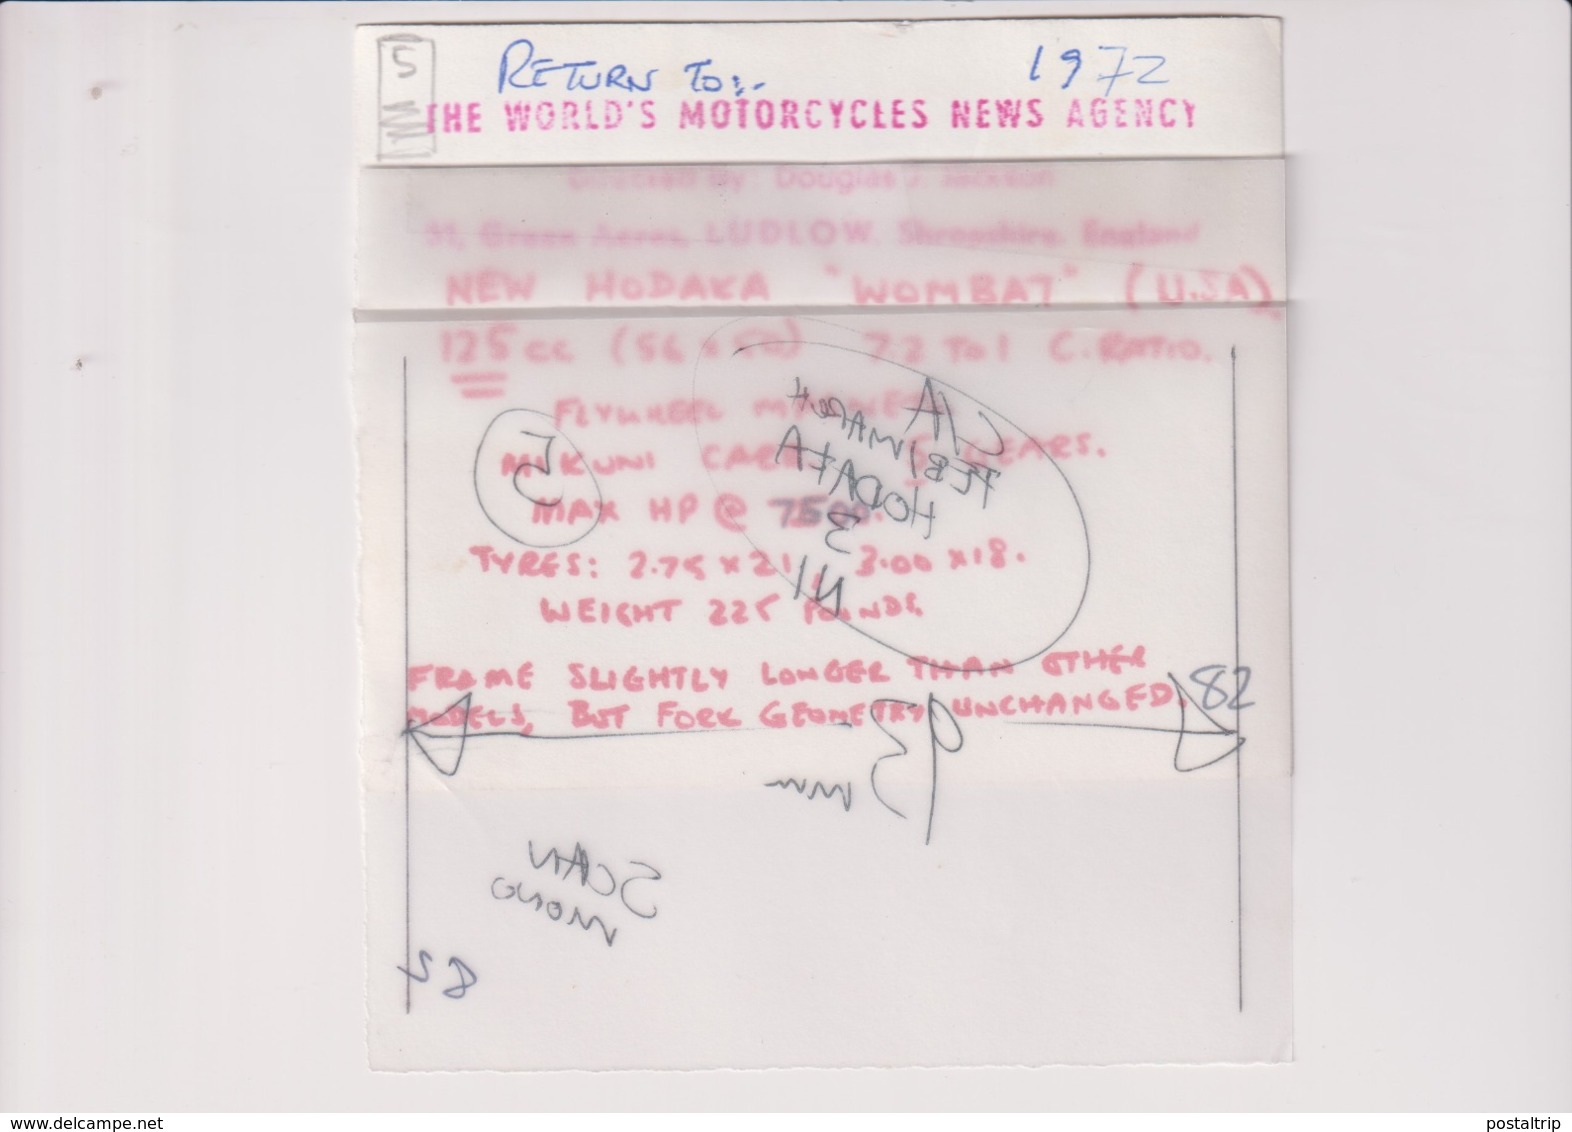 5
RETURN TO:-
1972
THE WORLD'S MOTORCYCLES NEWS AGENCY
Directed by: Douglas J. Jackson
31, Green Acres, LUDLOW, Shropshire, England
NEW HODAKA "WOMBAT" (U.S.A).
125 cc (56 x 50) 7.2 TO 1 C. RATIO.
FLYWHEEL MAGNETO.
MIKUNI CARB. 5 GEARS.
MAX HP @ 7500.
TYRES: 2.75 x 21, 3.00 x 18.
WEIGHT 225 POUNDS.
FRAME SLIGHTLY LONGER THAN OTHER
MODELS, BUT FORK GEOMETRY UNCHANGED.
82
C/A
FEB/MARCH
HODAKA
3
N/
5
93
mm
SCAN
MONO
82
www.delcampe.net
postaltrip